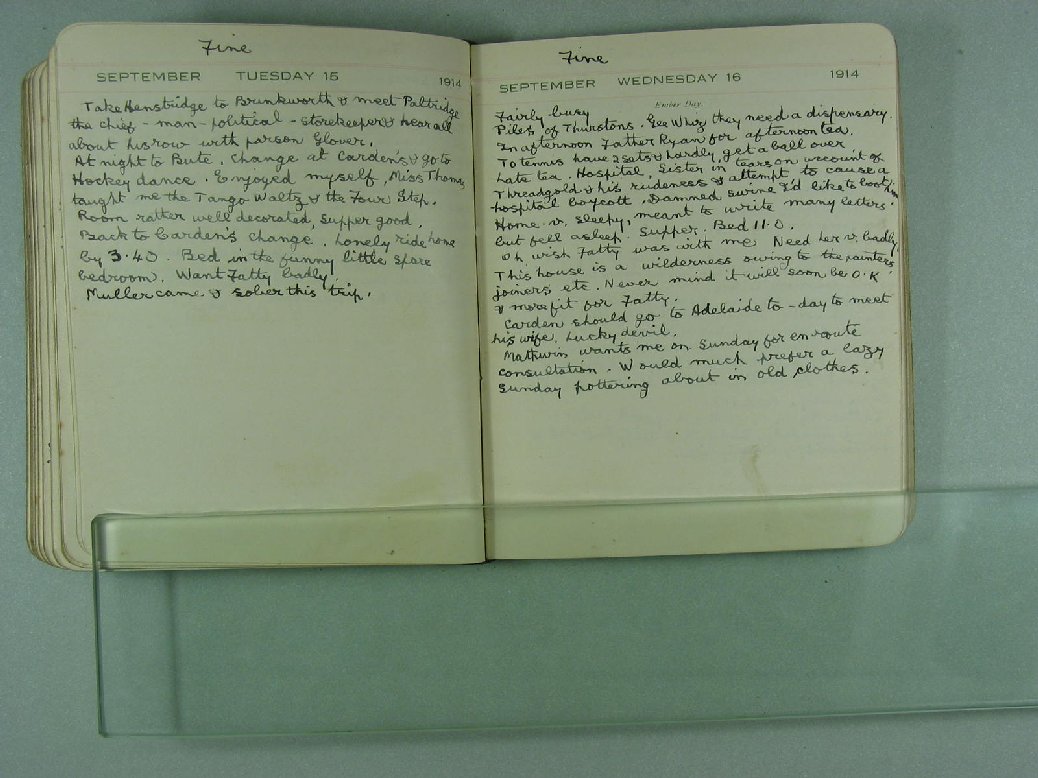 Fine
SEPTEMBER TUESDAY 15 1914
Take Henstridge to Brinkworth & meet Paltridge
the chief - man - political - storekeeper & hear all
about his row with parson Glover.
At night to Bute. Change at Carden's & go to
Hockey dance. Enjoyed myself, Miss Thomas
taught me the Tango Waltz & the Four Step.
Room rather well decorated, supper good.
Back to Carden's change. Lonely ride home
by 3.40. Bed in the funny little spare
bedroom. Want Fatty badly.
Muller came & sober this trip.
Fine
SEPTEMBER WEDNESDAY 16 1914
Ember Day
Fairly busy
Piles of Thurstons. Gee Whiz they need a dispensary.
In afternoon Father Ryan for afternoon tea.
To tennis have 2 sets & hardly get a ball over
Late tea. Hospital, Sister in tears on account of
Threadgold & his rudeness & attempt to cause a
hospital boycott. Damned swine I'd like to boot him
Home v. sleepy, meant to write many letters.
but fell asleep. Supper. Bed 11.0.
Oh wish Fatty was with me. Need her v. badly.
This house is a wilderness owing to the painters
joiners etc. Never mind it will soon be O.K
& more fit for Fatty.
Carden should go to Adelaide to-day to meet
his wife. Lucky devil.
wants me on Sunday for en route
consultation. Would much prefer a lazy
Sunday pottering about in old clothes.